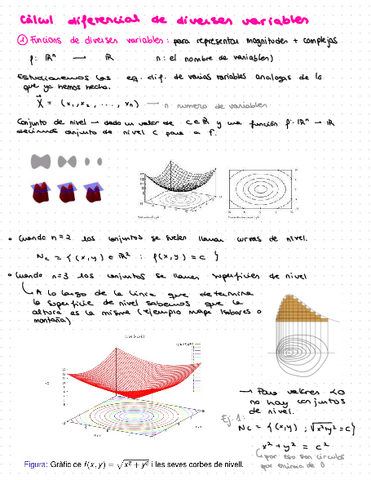 Càlcul diferencial de diverses variables
① Funcions de diverses variables: para representar magnitudes + complejas
f: ℝⁿ → ℝ n: el nombre de variables)
Estudiaremos las eq. dif. de varias variables analogas de lo
que ya hemos hecho.
X = (x₁, x₂, ..., xₙ) → n numero de variables
Conjunto de nivel → dado un valor de c ∈ ℝ y una función f: ℝⁿ → ℝ
decimos conjunto de nivel c para a f.
• Cuando n=2 los conjuntos se suelen llamar curvas de nivel.
Nc = {(x,y) ∈ ℝ² : f(x,y) = c}
• Cuando n=3 los conjuntos se llaman superficies de nivel
→ A lo largo de la linea que determina
la superficie de nivel sabemos que la
altura es la misma (ejemplo mapa
montaña)
→ Para valores <0
no hay conjuntos
de nivel.
Ej 1:
Nc = {(x,y) : √x²+y² = c}
x² + y² = c²
por eso son circulos
por encima de 0
Figura: Gràfic de f(x, y) = √x² + y² i les seves corbes de nivell.